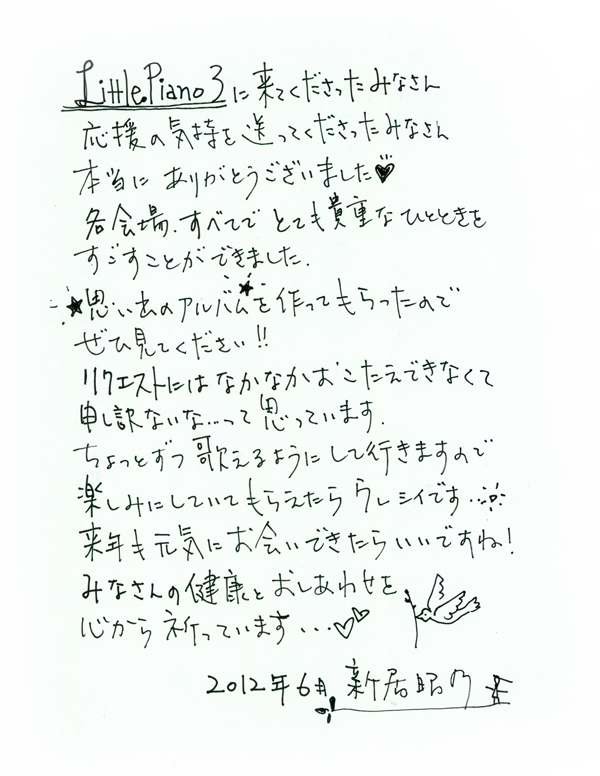 Little Piano 3 に来てくださったみなさん
応援の気持を送ってくださったみなさん
本当に ありがとうございました♥
各会場、すべてで とても貴重な ひとときを
すごすことができました.
★思い出のアルバム★を作ってもらったので
ぜひ見てください!!
リクエストには なかなかおこたえできなくて
申し訳ないな…って思っています.
ちょっとずつ 歌えるようにして行きますので
楽しみにしていてもらえたら ウレシイです…
来年も元気にお会いできたらいいですね!
みなさんの健康とおしあわせを
心から祈っています...♡♡
2012年6月 新居昭乃